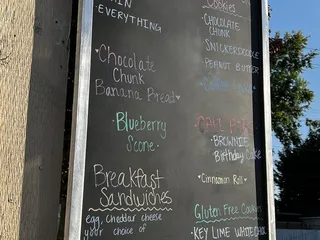 ·EVERYTHING
·Chocolate
Chunk
Banana Bread
·Blueberry
Scone·
Breakfast
Sandwiches
egg, cheddar cheese
your choice of
Cookies
·CHOCOLATE
CHUNK
SNICKERDOODLE
PEANUT BUTTER
·BROWNIE
·Birthday Cake
·Cinnamon Roll·
Gluten Free Cookies
·KEY LIME WHITE